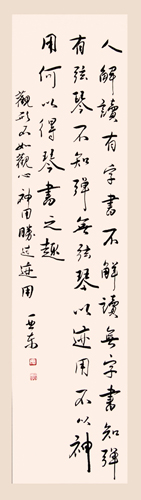 人解读有字书不解读无字书知弹
有弦琴不知弹無弦琴以迹用不以神
用何以得琴書之趣
觀形不如觀心神用勝过迹用
亚东